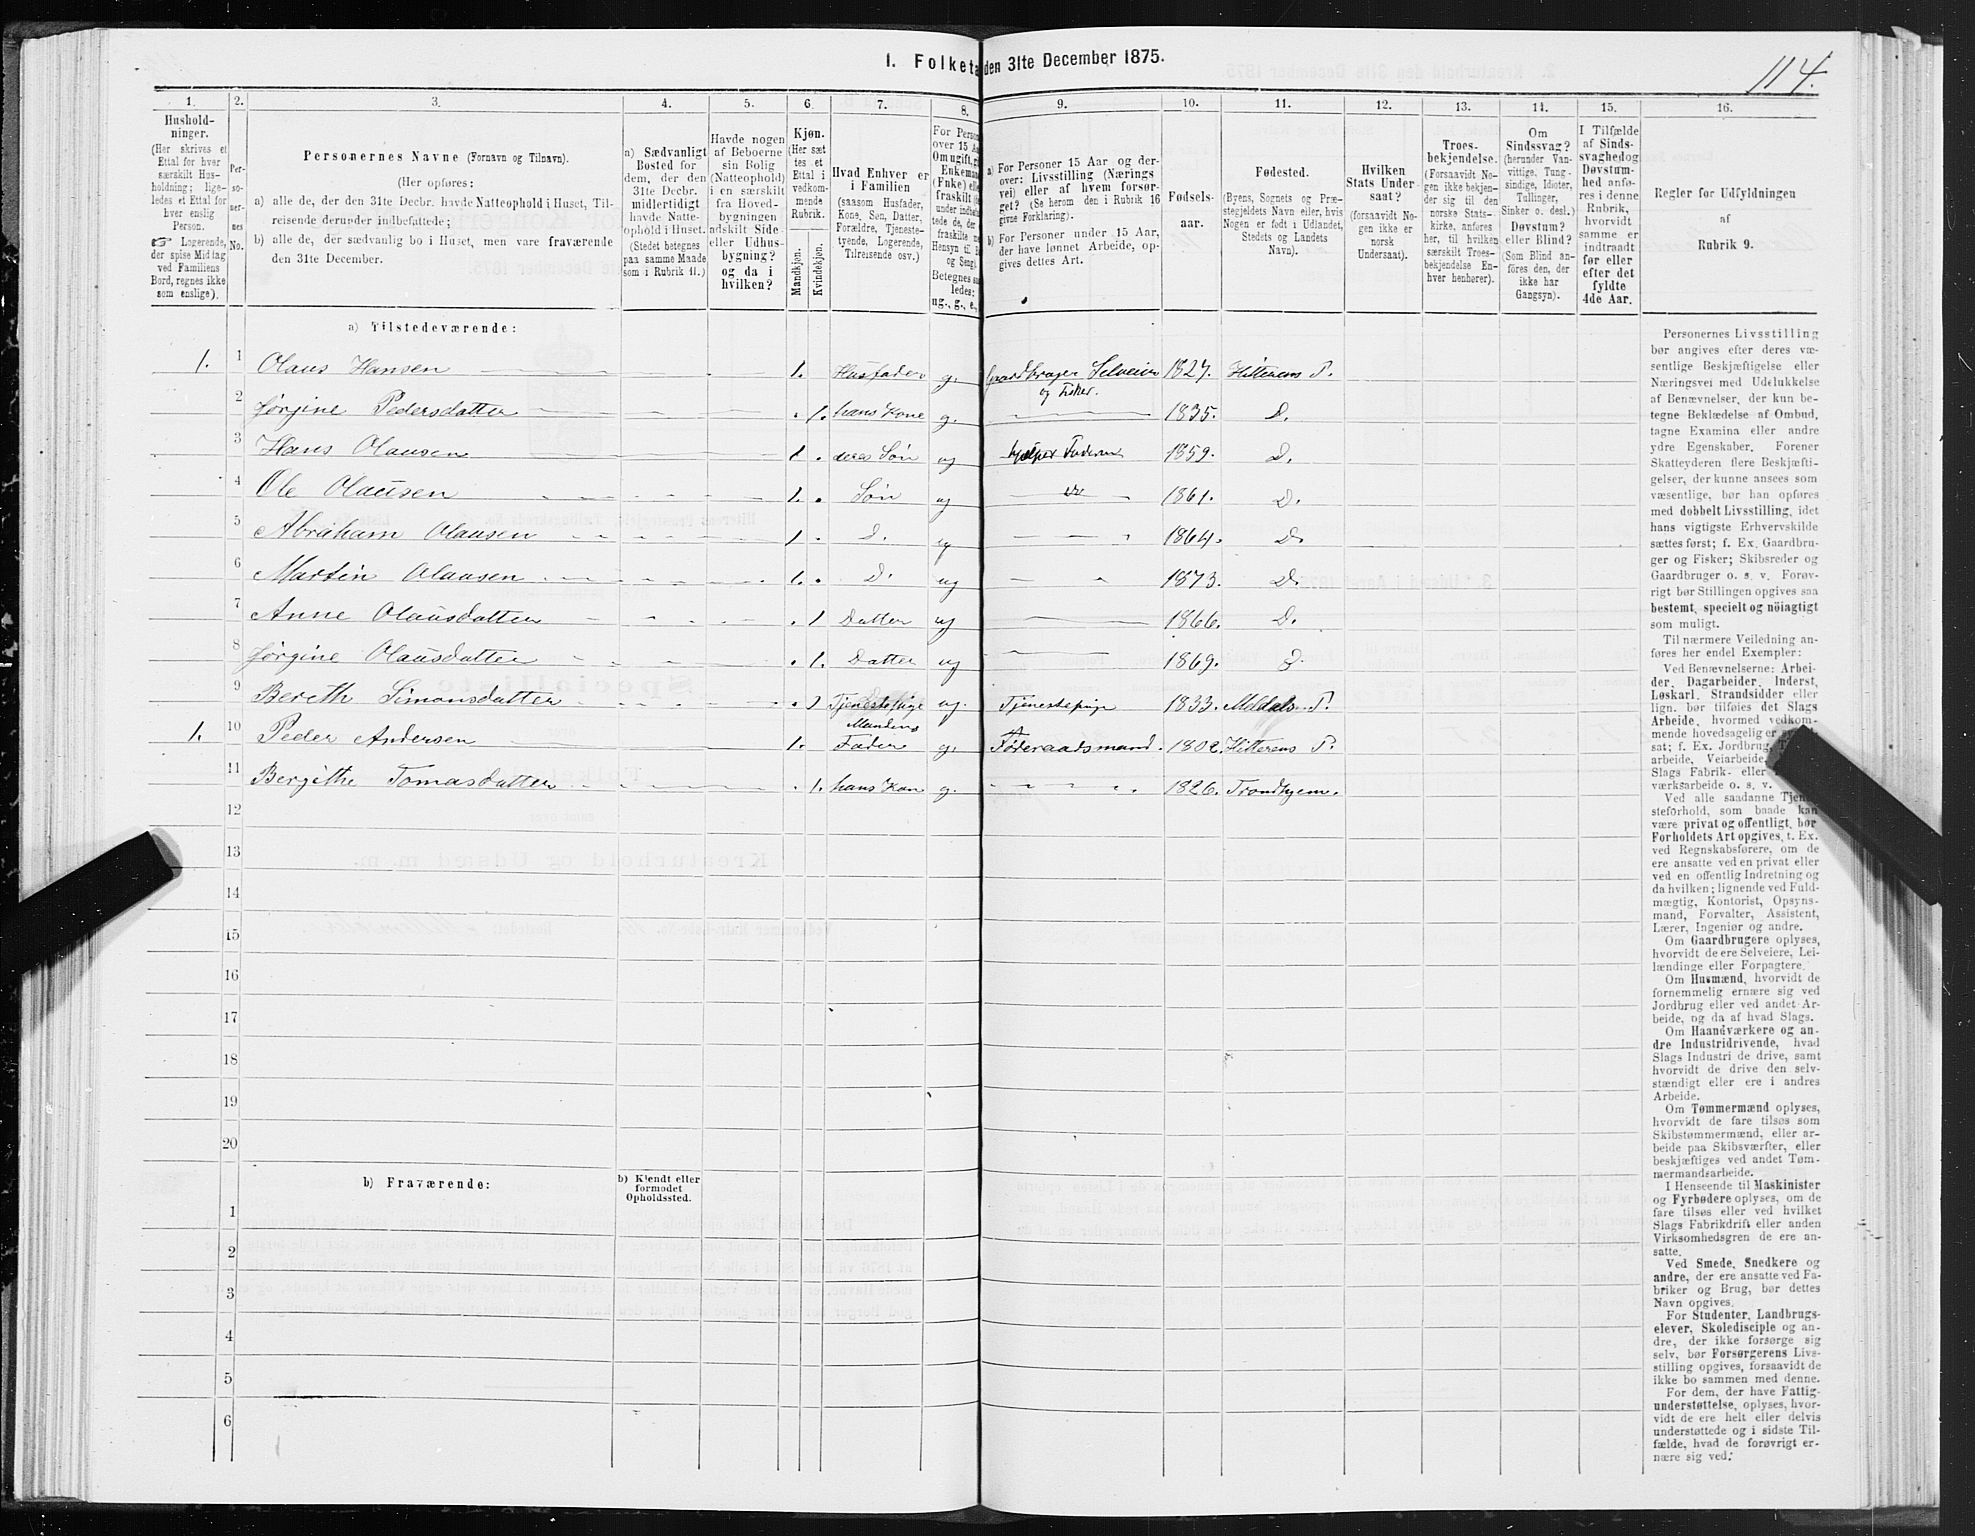 1. Folketa den 31te December 1875.
114.
1. 2. 3. 4. 5. 6. 7. 8. 9. 10. 11. 12. 13. 14. 15. 16.
Hushold-
ninger.
(Her skrives et
Ettal for hver
særskilt Hus-
holdning; lige-
ledes et Ettal for
hver enslig
Person.
☞ Logerende,
der spise Middag
ved Familiens
Bord, regnes ikke
som enslige).
Per-
so-
ner-
nes
No.
Personernes Navne (Fornavn og Tilnavn).
(Her opføres:
a) alle de, der den 31te Decbr. havde Natteophold i Huset, Til-
reisende derunder indbefattede;
b) alle de, der sædvanlig bo i Huset, men vare fraværende
den 31te December.
a) Sædvanligt
Bosted for
dem, der den
31te Decbr.
midlertidigt
havde Natte-
ophold i Huset.
(Stedet betegnes
paa samme Maade
som i Rubrik 11.)
Havde nogen
af Beboerne
sin Bolig
(Natteophold)
i en særskilt
fra Hoved-
bygningen
adskilt Side-
eller Udhus-
bygning?
og da i
hvilken?
Kjøn.
(Her sæt-
tes et
Ettal i
vedkom-
mende
Rubrik.
Mandkjøn.
Kvindekjøn.
Hvad Enhver er
i Familien
(saasom Husfader,
Kone, Søn, Datter,
Forældre, Tjeneste-
tyende, Logerende,
Tilreisende osv.)
For Person
over 15 Aa
Om ugift, gi
Enkeman
(Enke) elle
fraskilt
Betegnes saa
ledes:
ug., g., e.,
a) For Personer 15 Aar og der-
over: Livsstilling (Nærings-
vei) eller af hvem forsør-
get? (Se herom den i Rubrik 16
givne Forklaring).
b) For Personer under 15 Aar,
der have lønnet Arbeide, op-
gives dettes Art.
Fødsels-
aar.
Fødested.
(Byens, Sognets og Præ-
stegjeldets Navn eller, hvis
Nogen er født i Udlandet,
Stedets og Landets
Navn).
Hvilken
Stats Under-
saat?
(forsaavidt No-
gen ikke er
norsk
Undersaat).
Troes-
bekjendelse.
(Forsaavidt No-
gen ikke bekjen-
der sig til den
norske Stats-
kirke, anføres
her, til hvilken
særskilt Troes-
bekjendelse En-
hver henhører).
Om
Sindssvag?
(herunder Van-
vittige, Tung-
sindige, Idioter,
Tullinger,
Sinker o. desl.)
Døvstum?
eller Blind?
(Som Blind an-
føres den, der
ikke har
Gangsyn).
I Tilfælde
af Sinds-
svaghed og
Døvstum-
hed anfø-
res i denne
Rubrik,
hvorvidt
samme er
indtraadt
før eller
efter det
fyldte
4de Aar.
Regler for Udfyldningen
af
Rubrik 9.
a) Tilstedeværende:
1. 1 Olaus Hansen 1. Husfader g. Gaardbruger Selveier og Fisker. 1827. Hitterens P.
2 Jørgine Pedersdatter 1. hans Kone g. 1835. D.
3 Hans Olausen 1 deres Søn ug hjælper Faderen 1859. D.
4 Ole Olausen 1. Søn ug 1861. D.
5 Abraham Olausen 1 D. ug 1864. D.
6 Martin Olausen 1. D. ug 1873. D.
7 Anne Olausdatter 1 Datter ug 1866. D.
8 Jørgine Olausdatter 1. Datter ug 1869. D.
9 Bereth Simonsdatter 1 Tjenestepige ug. Tjenestepige 1833. Meldals P.
1. 10 Peder Andersen 1. Mandens Fader g. Føderaadsmand. 1802. Hitterens P.
11 Bergithe Tomasdatter 1. hans Kon g. 1826. Trondhjem.
12
13
14
15
16
17
18
19
20
b) Fraværende:
b) Kjendt eller
formodet
Opholdssted.
1
2
3
4
5
6
Personernes Livsstilling
bør angives efter deres væ-
sentlige Beskjæftigelse eller
Næringsvei med Udelukkelse
af Benævnelser, der kun be-
tegne Beklædelse af Ombud,
tagne Examina eller andre
ydre Egenskaber. Forener
Skatteyderen flere Beskjæfti-
gelser, der kunne ansees som
væsentlige, bør han opføres
med dobbelt Livsstilling, idet
hans vigtigste Erhvervskilde
sættes først; f. Ex. Gaardbru-
ger og Fisker; Skibsreder og
Gaardbruger o. s. v. Forøv-
rigt bør Stillingen opgives saa
bestemt, specielt og nöiagtigt
som muligt.
Til nærmere Veiledning an-
føres her endel Exempler:
Ved Benævnelserne: Arbei-
der, Dagarbeider, Inderst,
Løskarl, Strandsidder eller
lign. bør tilføies det Slags
Arbeide, hvormed vedkom-
mende hovedsagelig er
sat; f. Ex. Jordbrug,
arbeide, Veiarbeide,
Slags Fabrik- eller
værksarbeide o. s. v.
Ved alle saadanne Tjene-
steforhold, som baade kan
være privat og offentligt, bør
Forholdets Art opgives, t. Ex.
ved Regnskabsførere, om de
ere ansatte ved en privat eller
ved en offentlig Indretning og
da hvilken; lignende ved Fuld-
mægtig, Kontorist, Opsyns-
mand, Forvalter, Assistent,
Lærer, Ingeniør og andre.
Om Gaardbrugere oplyses,
hvorvidt de ere Selveiere, Lei-
lændinge eller Forpagtere.
Om Husmænd, hvorvidt de
fornemmelig ernære sig ved
Jordbrug eller ved andet Ar-
beide, og da af hvad Slags.
Om Haandværkere og an-
dre Industridrivende, hvad
Slags Industri de drive, samt
hvorvidt de drive den selv-
stændigt eller ere i andres
Arbeide.
Om Tømmermænd oplyses,
hvorvidt de fare tilsøs som
Skibstømmermænd, eller ar-
beide paa Skibsværfter, eller
beskjæftiges ved andet Tøm-
mermandsarbeide.
I Henseende til Maskinister
og Fyrbødere oplyses, om de
fare tilsøs eller ved hvilket
Slags Fabrikdrift eller anden
Virksomhedsgren de ere an-
satte.
Ved Smede, Snedkere og
andre, der ere ansatte ved Fa-
briker og Brug, bør dettes
Navn opgives.
For Studenter, Landbrugs-
elever, Skoledisciple og an-
dre, der ikke forsørge sig
selv, bør Forsørgerens Livs-
stilling opgives, forsaavidt de
ikke bo sammen med denne.
For dem, der have Fattig-
understøttelse, oplyses, hvor-
vidt de ere helt eller delvis
understøttede og i sidste Til-
fælde, hvad de forøvrigt er-
nære sig ved.